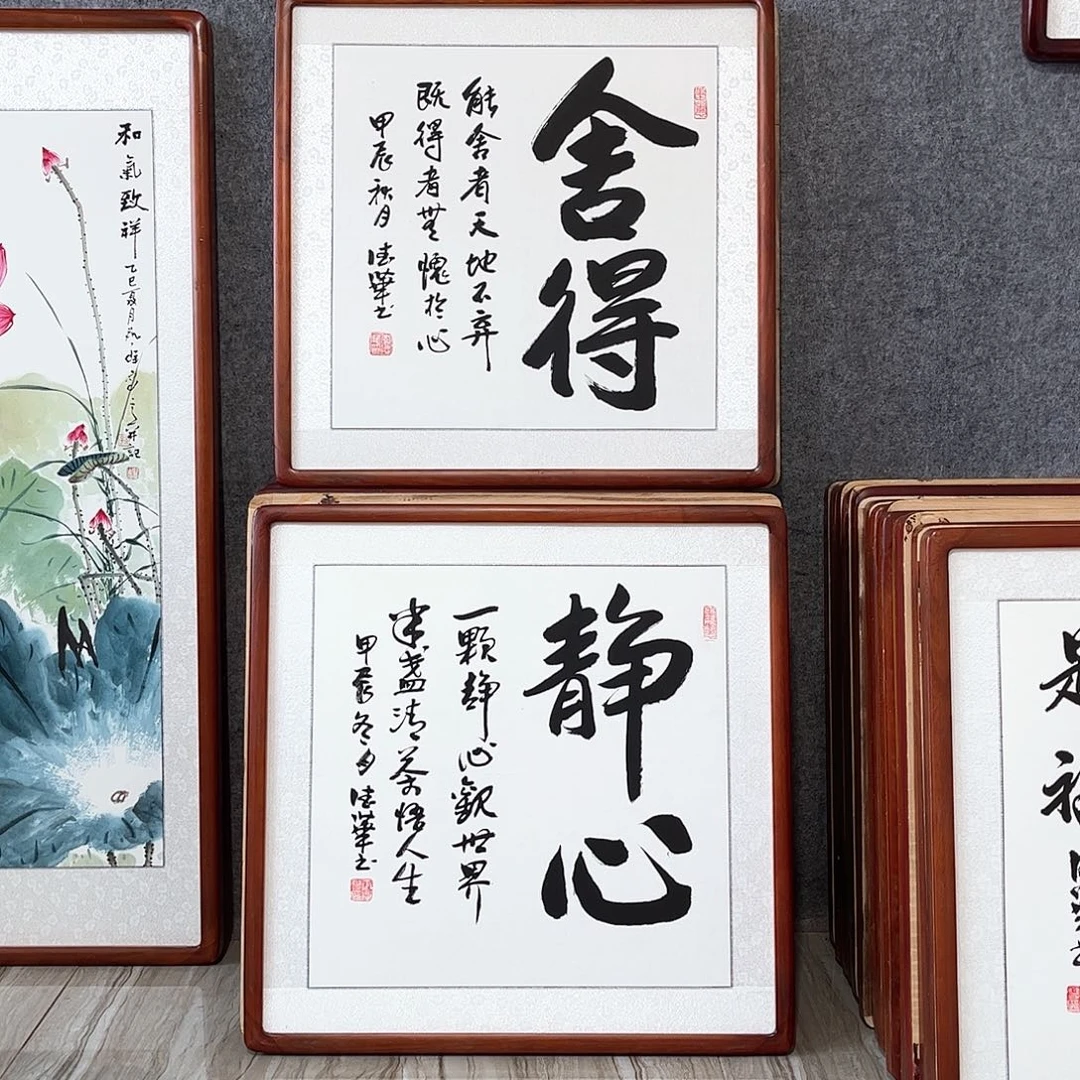 舍得
能舍者天地不弃
既得者無愧於心
甲辰秋月 德華书
静心
一颗静心觀世界
半盏清茶悟人生
甲辰冬月 德華书
和氣致祥
乙巳夏月
是福